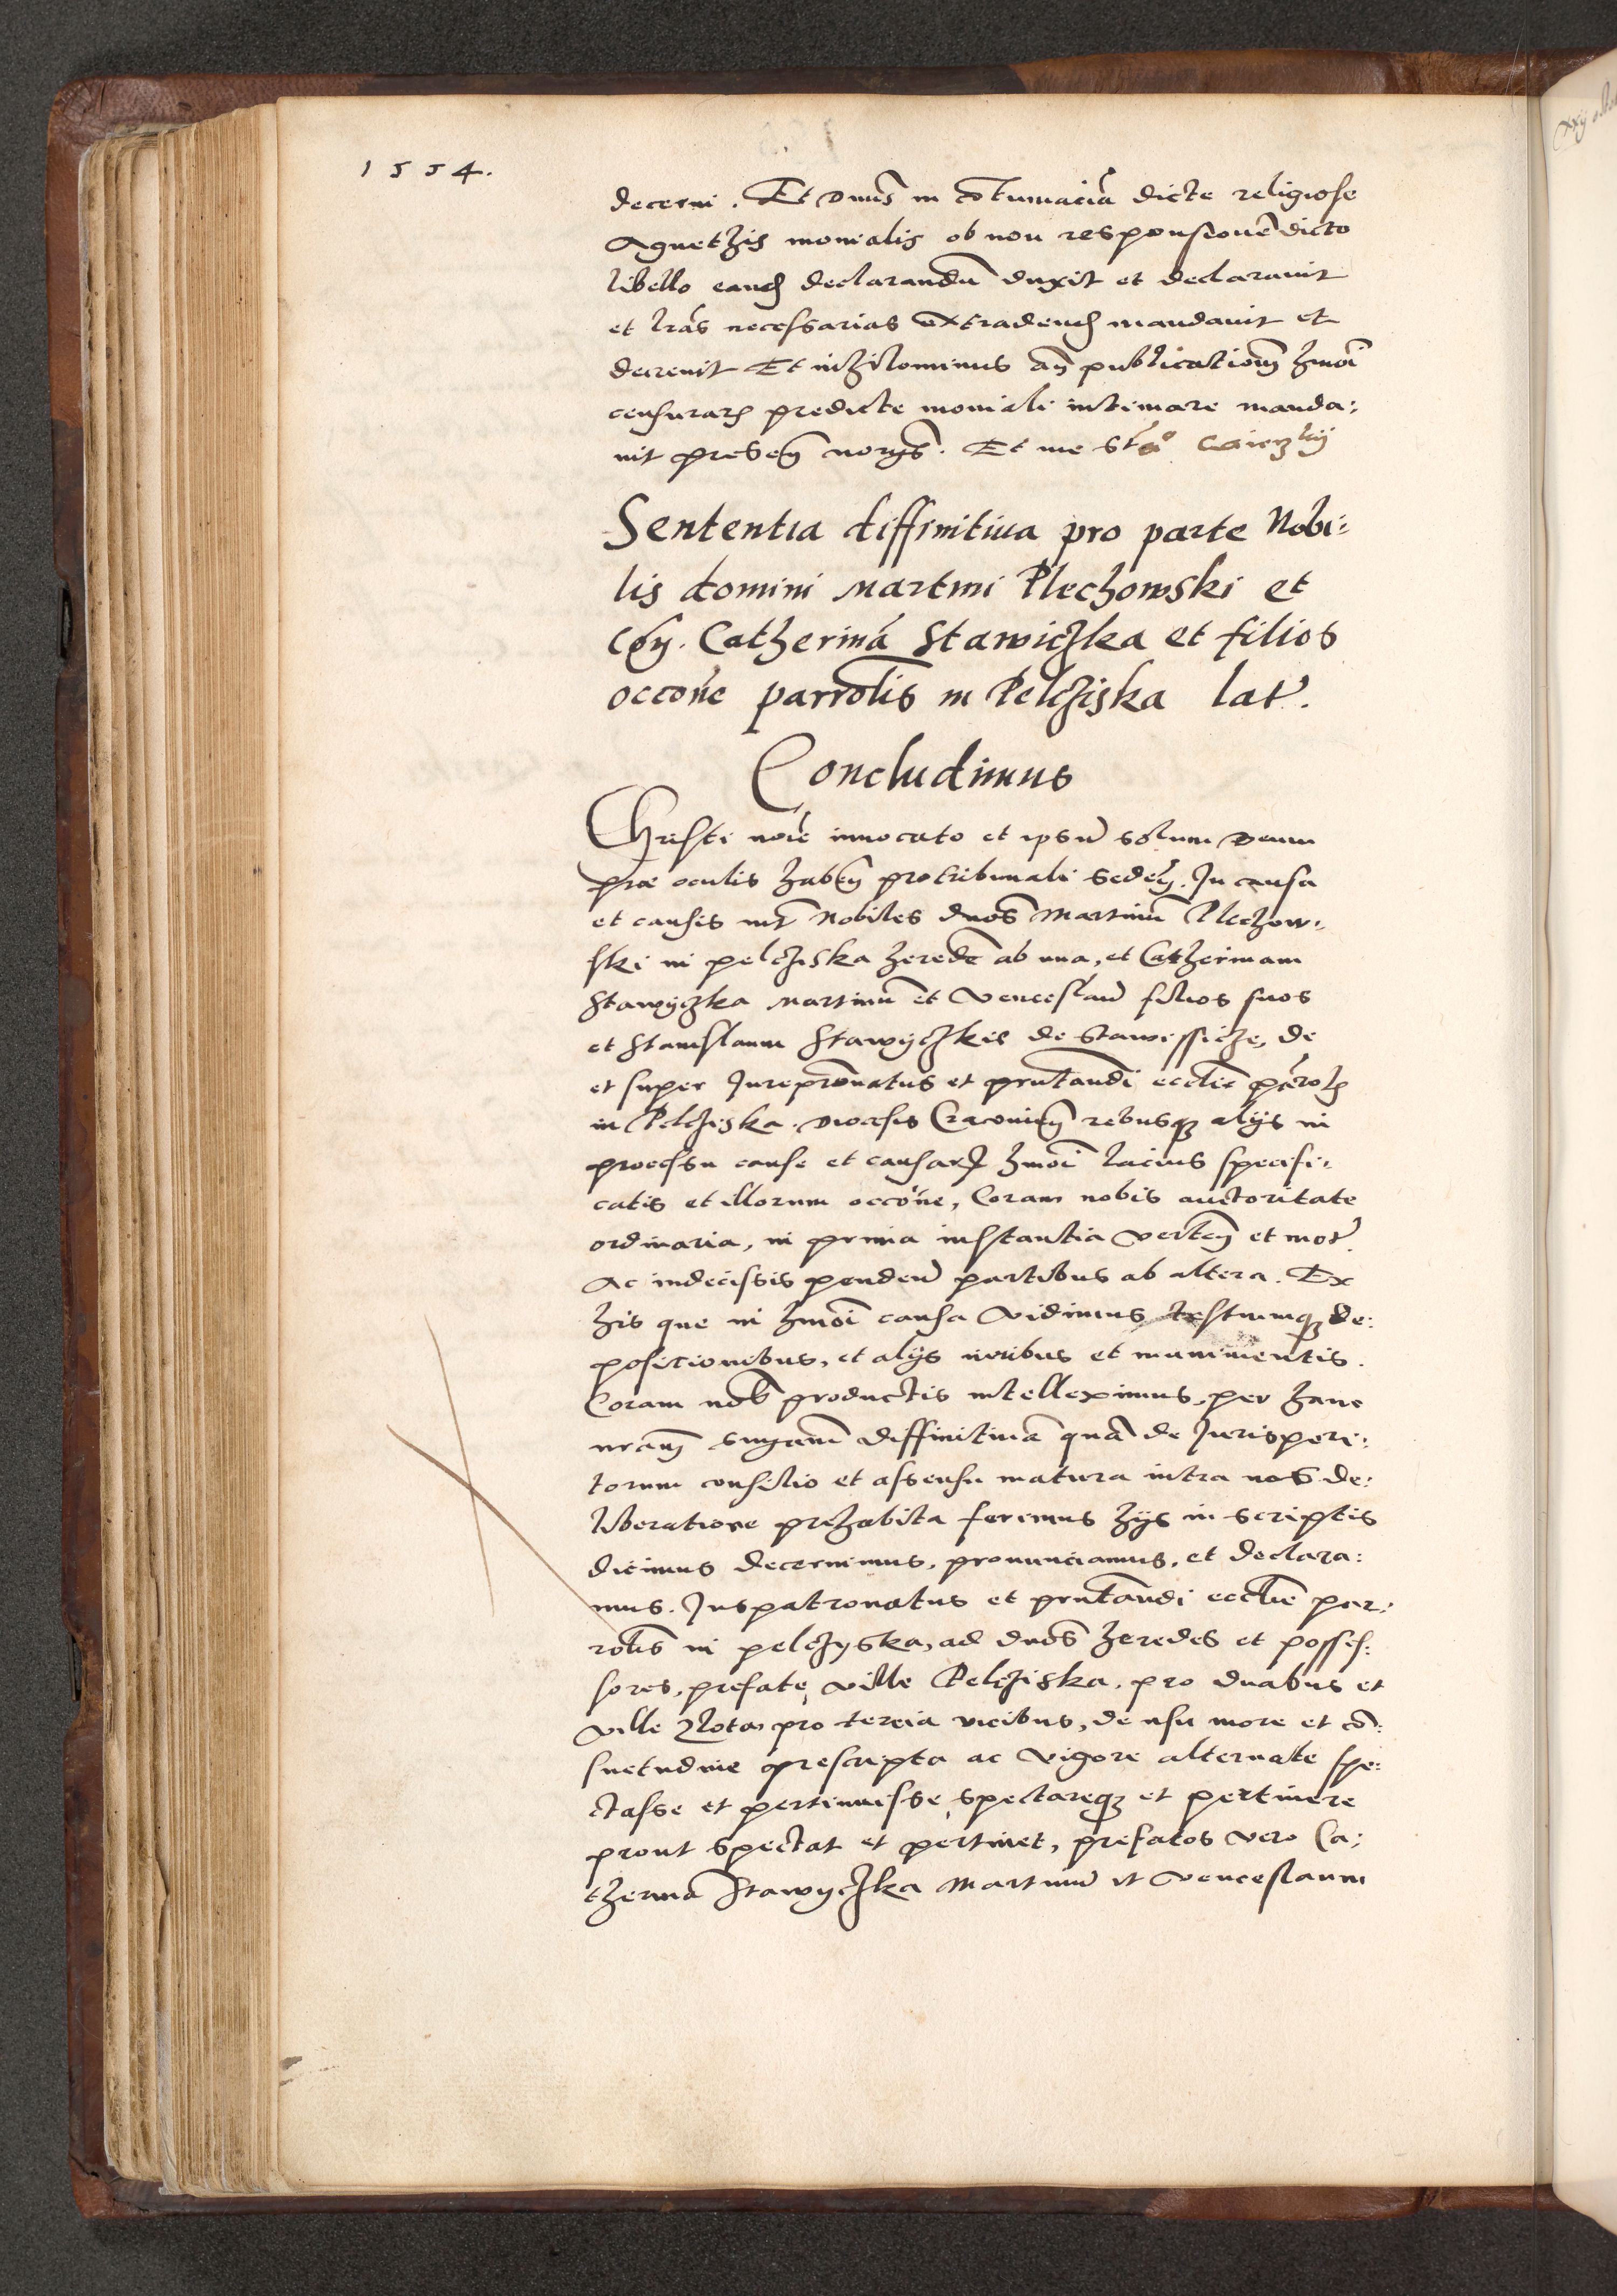 1554.
decerni. Et Dnus in cõtumaciã dicte religiose
Agnethis monialis ob non responsionẽ dicto
libello eand declarandũ duxit et declarauit
et lrãs necessarias extradend mandauit et
decreuit Et nihilominus añ publicationem hmõi
censurarum predicte moniali intimare manda:
uit presen̄ no Et me
Sententia diffinitiua pro parte Nobi:
lis domini Martini Plechowski et
Con. Catherinã Stawiczka et filios
occõne parrolis in Pelcziska lat.
Concludimus
Christi noĩe inuocato et ipsũ solum Deum
præ oculis habeñ pro tribunali sedeñ. In causa
et causis int Nobiles dnos Martinũ Plechow:
ski in pelcziska heredẽ ab una, et Catherinam
Stawyczka Martinũ et Venceslaũ filios suos
et Stanislaum Stawyczkis de Stawissicze, de
et super Jurepronatus et pntandi ecclie parrol
in Pelcziska. Diocesis Cracouieñ rebusq alijs in
processu cause et causarum hmõi lacius specifi:
catis et illorum occõne, Coram nobis auctoritate
ordinaria, in prima instantia verteñ et mot.
Ac indecissis penden partibus ab altera. Ex
his que in hmõi causa vidimus testiumq de:
positionibus, et alijs iuribus et munimentis.
Coram nob productis intelleximus, per hanc
nram sngam diffinitiuã quã de Jurisperi:
torum consilio et assensu matura intra nos de:
liberatione prehabita ferimus hijs in scriptis
dicimus decernimus, pronunciamus, et declara:
mus. Juspatronatus et pntandi ecclie par:
rolis in pelczyska, ad dnos heredes et posses:
sores, prefate ville Pelcziska, pro duabus et
ville Zlota pro tercia vicibus, de usu more et cõ:
suetudine prescripta ac vigore alternate spe:
ctasse et pertinuisse, spectareq et pertinere
prout spectat et pertinet, prefatos vero Ca:
therinã Stawyczka Martinũ et Venceslaum